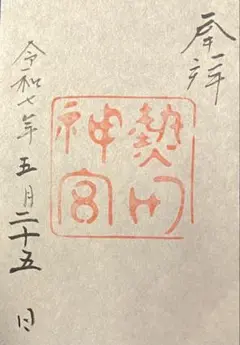 奉拝
熱田
神宮
令和七年五月二十五日